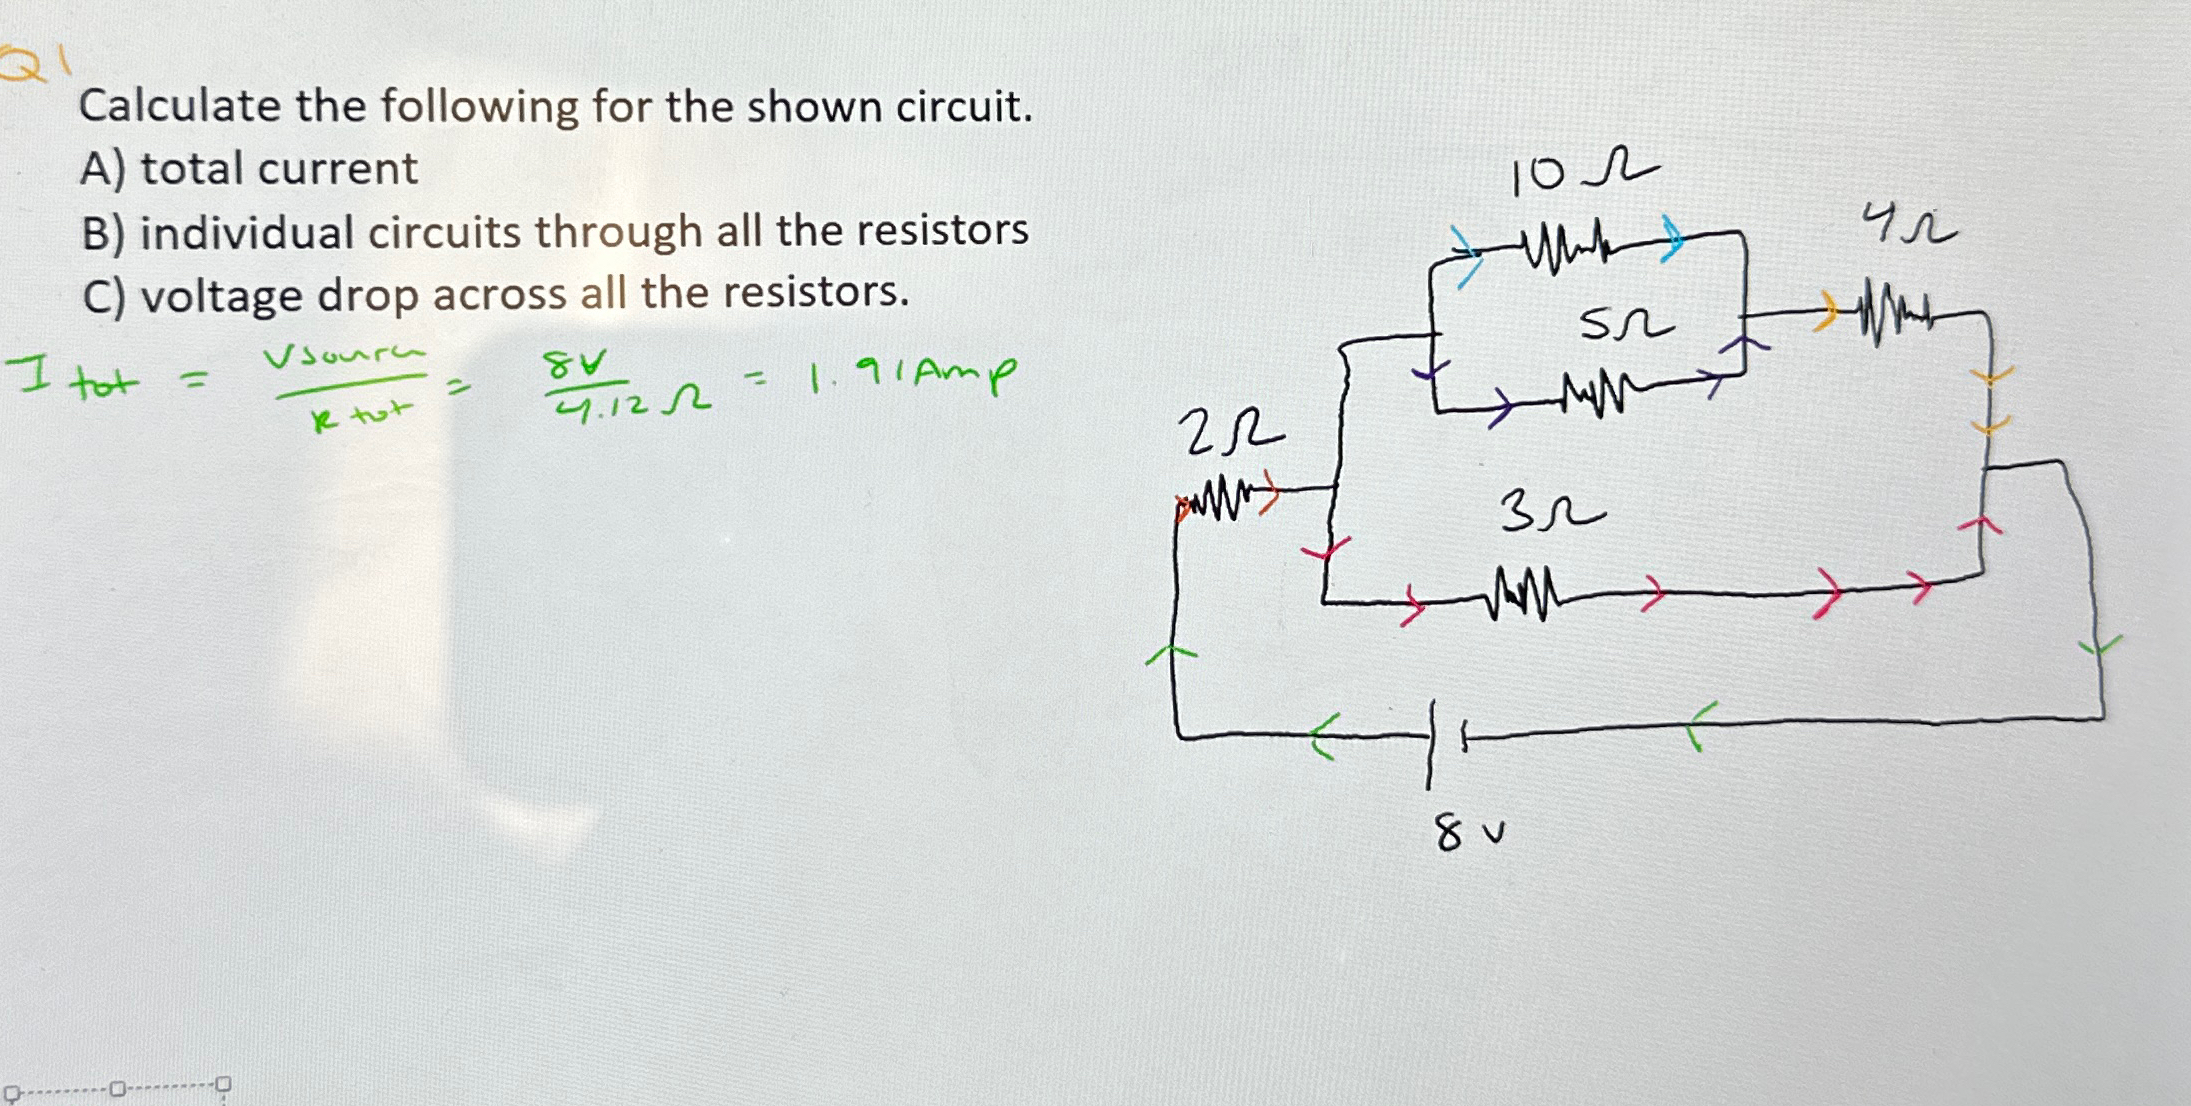 Q1
Calculate the following for the shown circuit.
A) total current
B) individual circuits through all the resistors
C) voltage drop across all the resistors.
I tot = Vsource / R tot = 8V / 4.12 Ω = 1.91 Amp
10 Ω
4Ω
5Ω
2Ω
3Ω
8 v